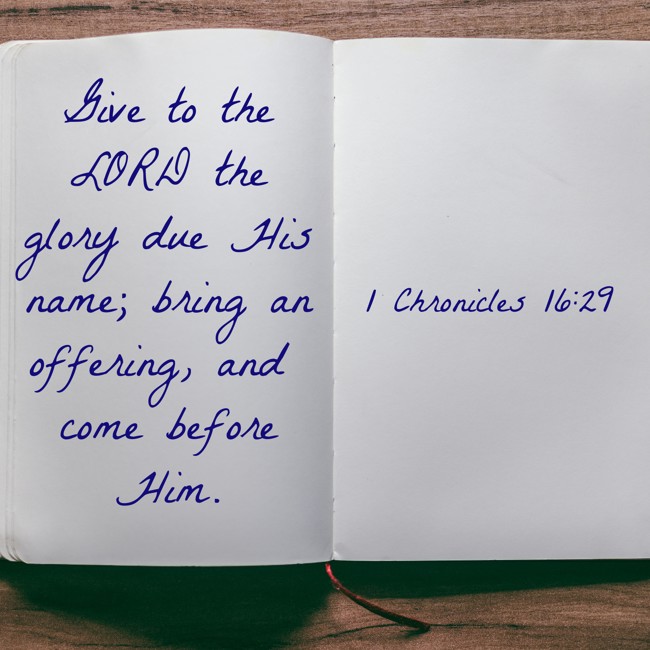 Give to the
LORD the
glory due His
name; bring an
offering, and
come before
Him.
1 Chronicles 16:29